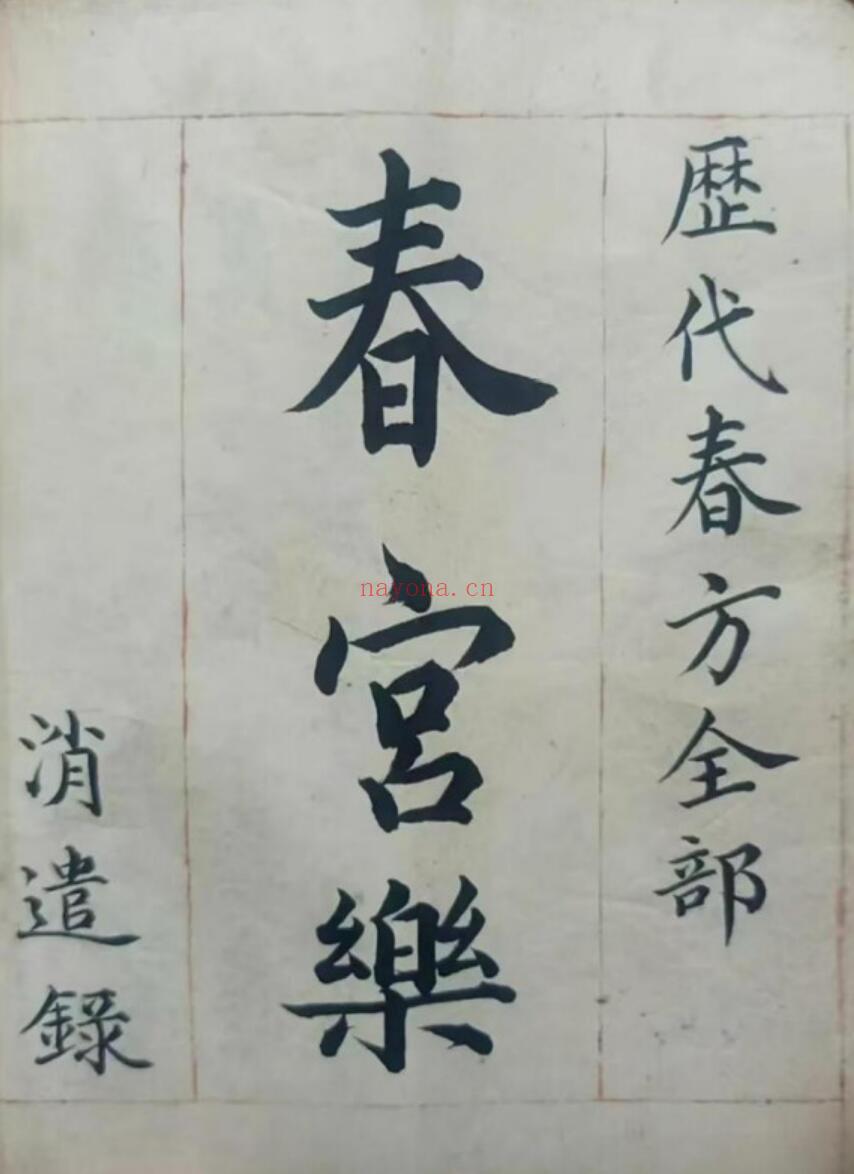 歷代春方全部
春宮樂
消遣錄
nayona.cn